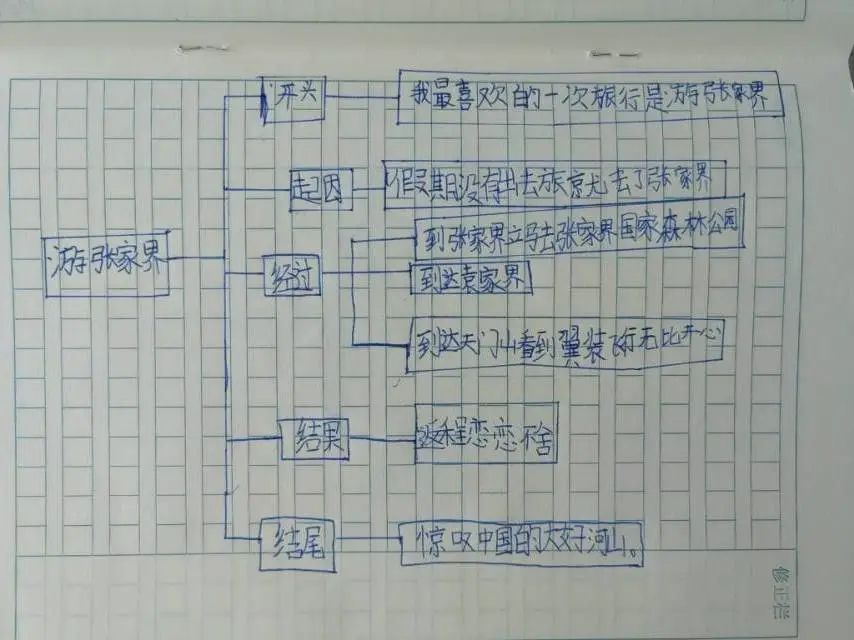 开头
我最喜欢的一次旅行是游张家界
起因
假期没有出去旅就去了张家界
游张家界
经过
到张家界立马去张家界国家森林公园
到达袁家界
到达天门山看到翼装飞行无比开心
结果
返程恋恋不舍
结尾
惊叹中国的大好河山。
修正栏